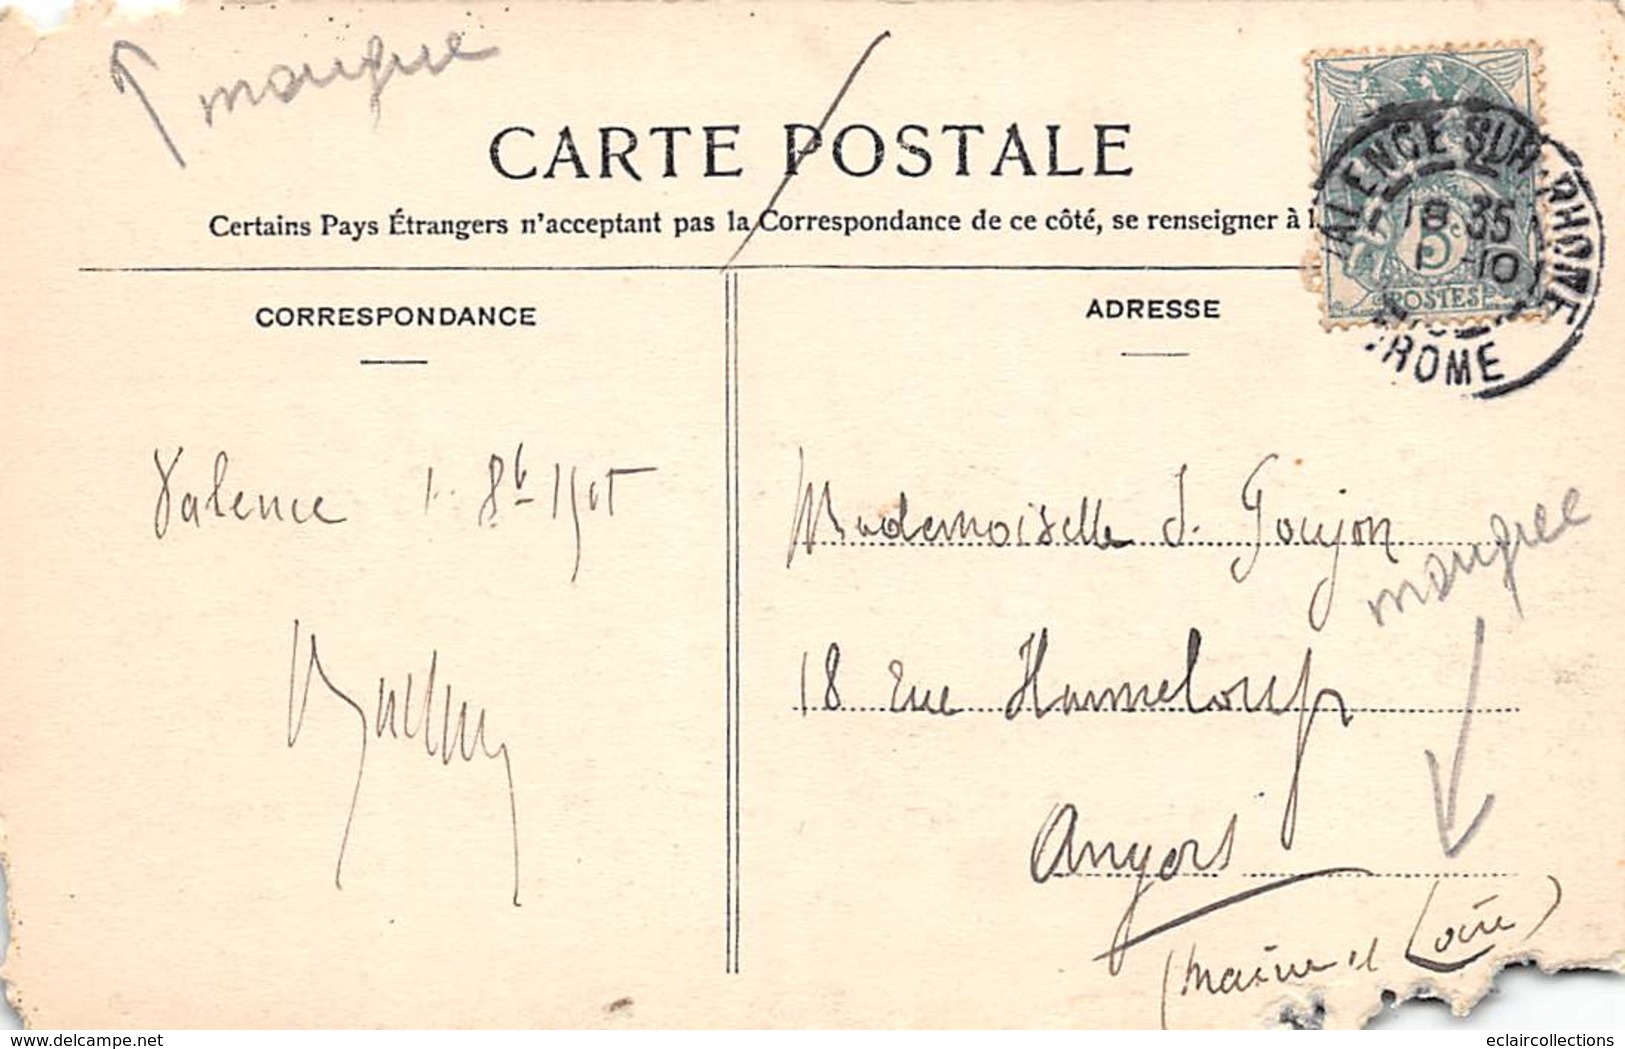 mangue
CARTE POSTALE
Certains Pays Étrangers n'acceptant pas la Correspondance de ce côté, se renseigner à l
VALENCE-SUR-RHONE
18 35
1 -10
DROME
5c
POSTES
CORRESPONDANCE
ADRESSE
Valence 1. 8b 1905
Mademoiselle J. Goujon
mangée
18 rue Hanneloup
Angers
(Maine et Loire)
www.delcampe.net
eclaircollections